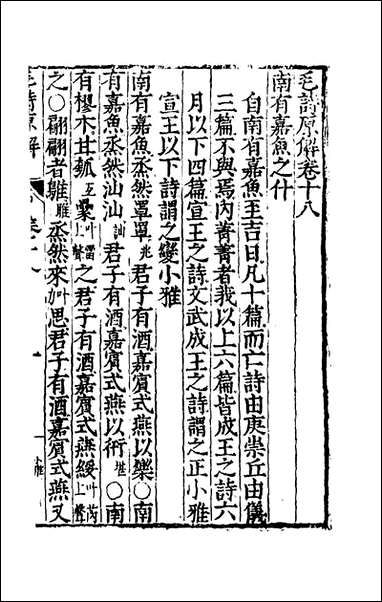 毛詩原解卷十八
南有嘉魚之什
自南有嘉魚至吉日凡十篇而亡詩由庚崇丘由儀
三篇不與焉內菁菁者我以上六篇皆成王之詩六
月以下四篇宣王之詩文武成王之詩謂之正小雅
宣王以下詩謂之變小雅
南有嘉魚烝然罩罩兆君子有酒嘉賓式燕以樂○南
有嘉魚烝然汕汕訕君子有酒嘉賓式燕以衎堪○南
有樛木甘瓠互纍叶雷上聲之君子有酒嘉賓式燕綏叶芮上聲
之○翩翩者鵻烝然來叶思君子有酒嘉賓式燕又
毛詩原解
一
小雅